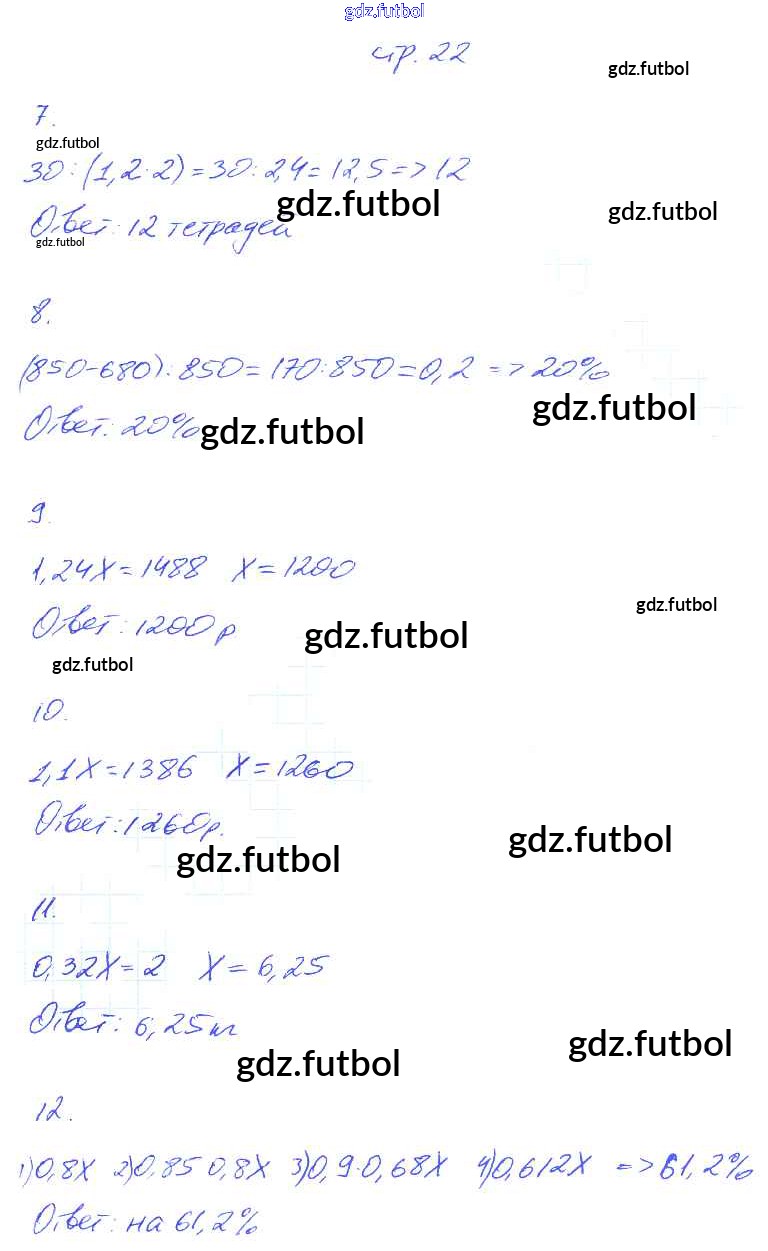 gdz.futbol
стр. 22
gdz.futbol
7.
gdz.futbol
30:(1,2·2)=30:2,4=12,5=>12
gdz.futbol
gdz.futbol
Ответ: 12 тетрадей
gdz.futbol
8.
(850-680):850=170:850=0,2 => 20%
gdz.futbol
Ответ: 20%
gdz.futbol
9.
1,24X=1488 X=1200
gdz.futbol
Ответ: 1200р
gdz.futbol
gdz.futbol
10.
1,1X=1386 X=1260
Ответ: 1260р.
gdz.futbol
gdz.futbol
11.
0,32X=2 X=6,25
Ответ: 6,25 кг
gdz.futbol
gdz.futbol
12.
1)0,8X 2)0,85 0,8X 3)0,9·0,68X 4)0,612X => 61,2%
Ответ: на 61,2%